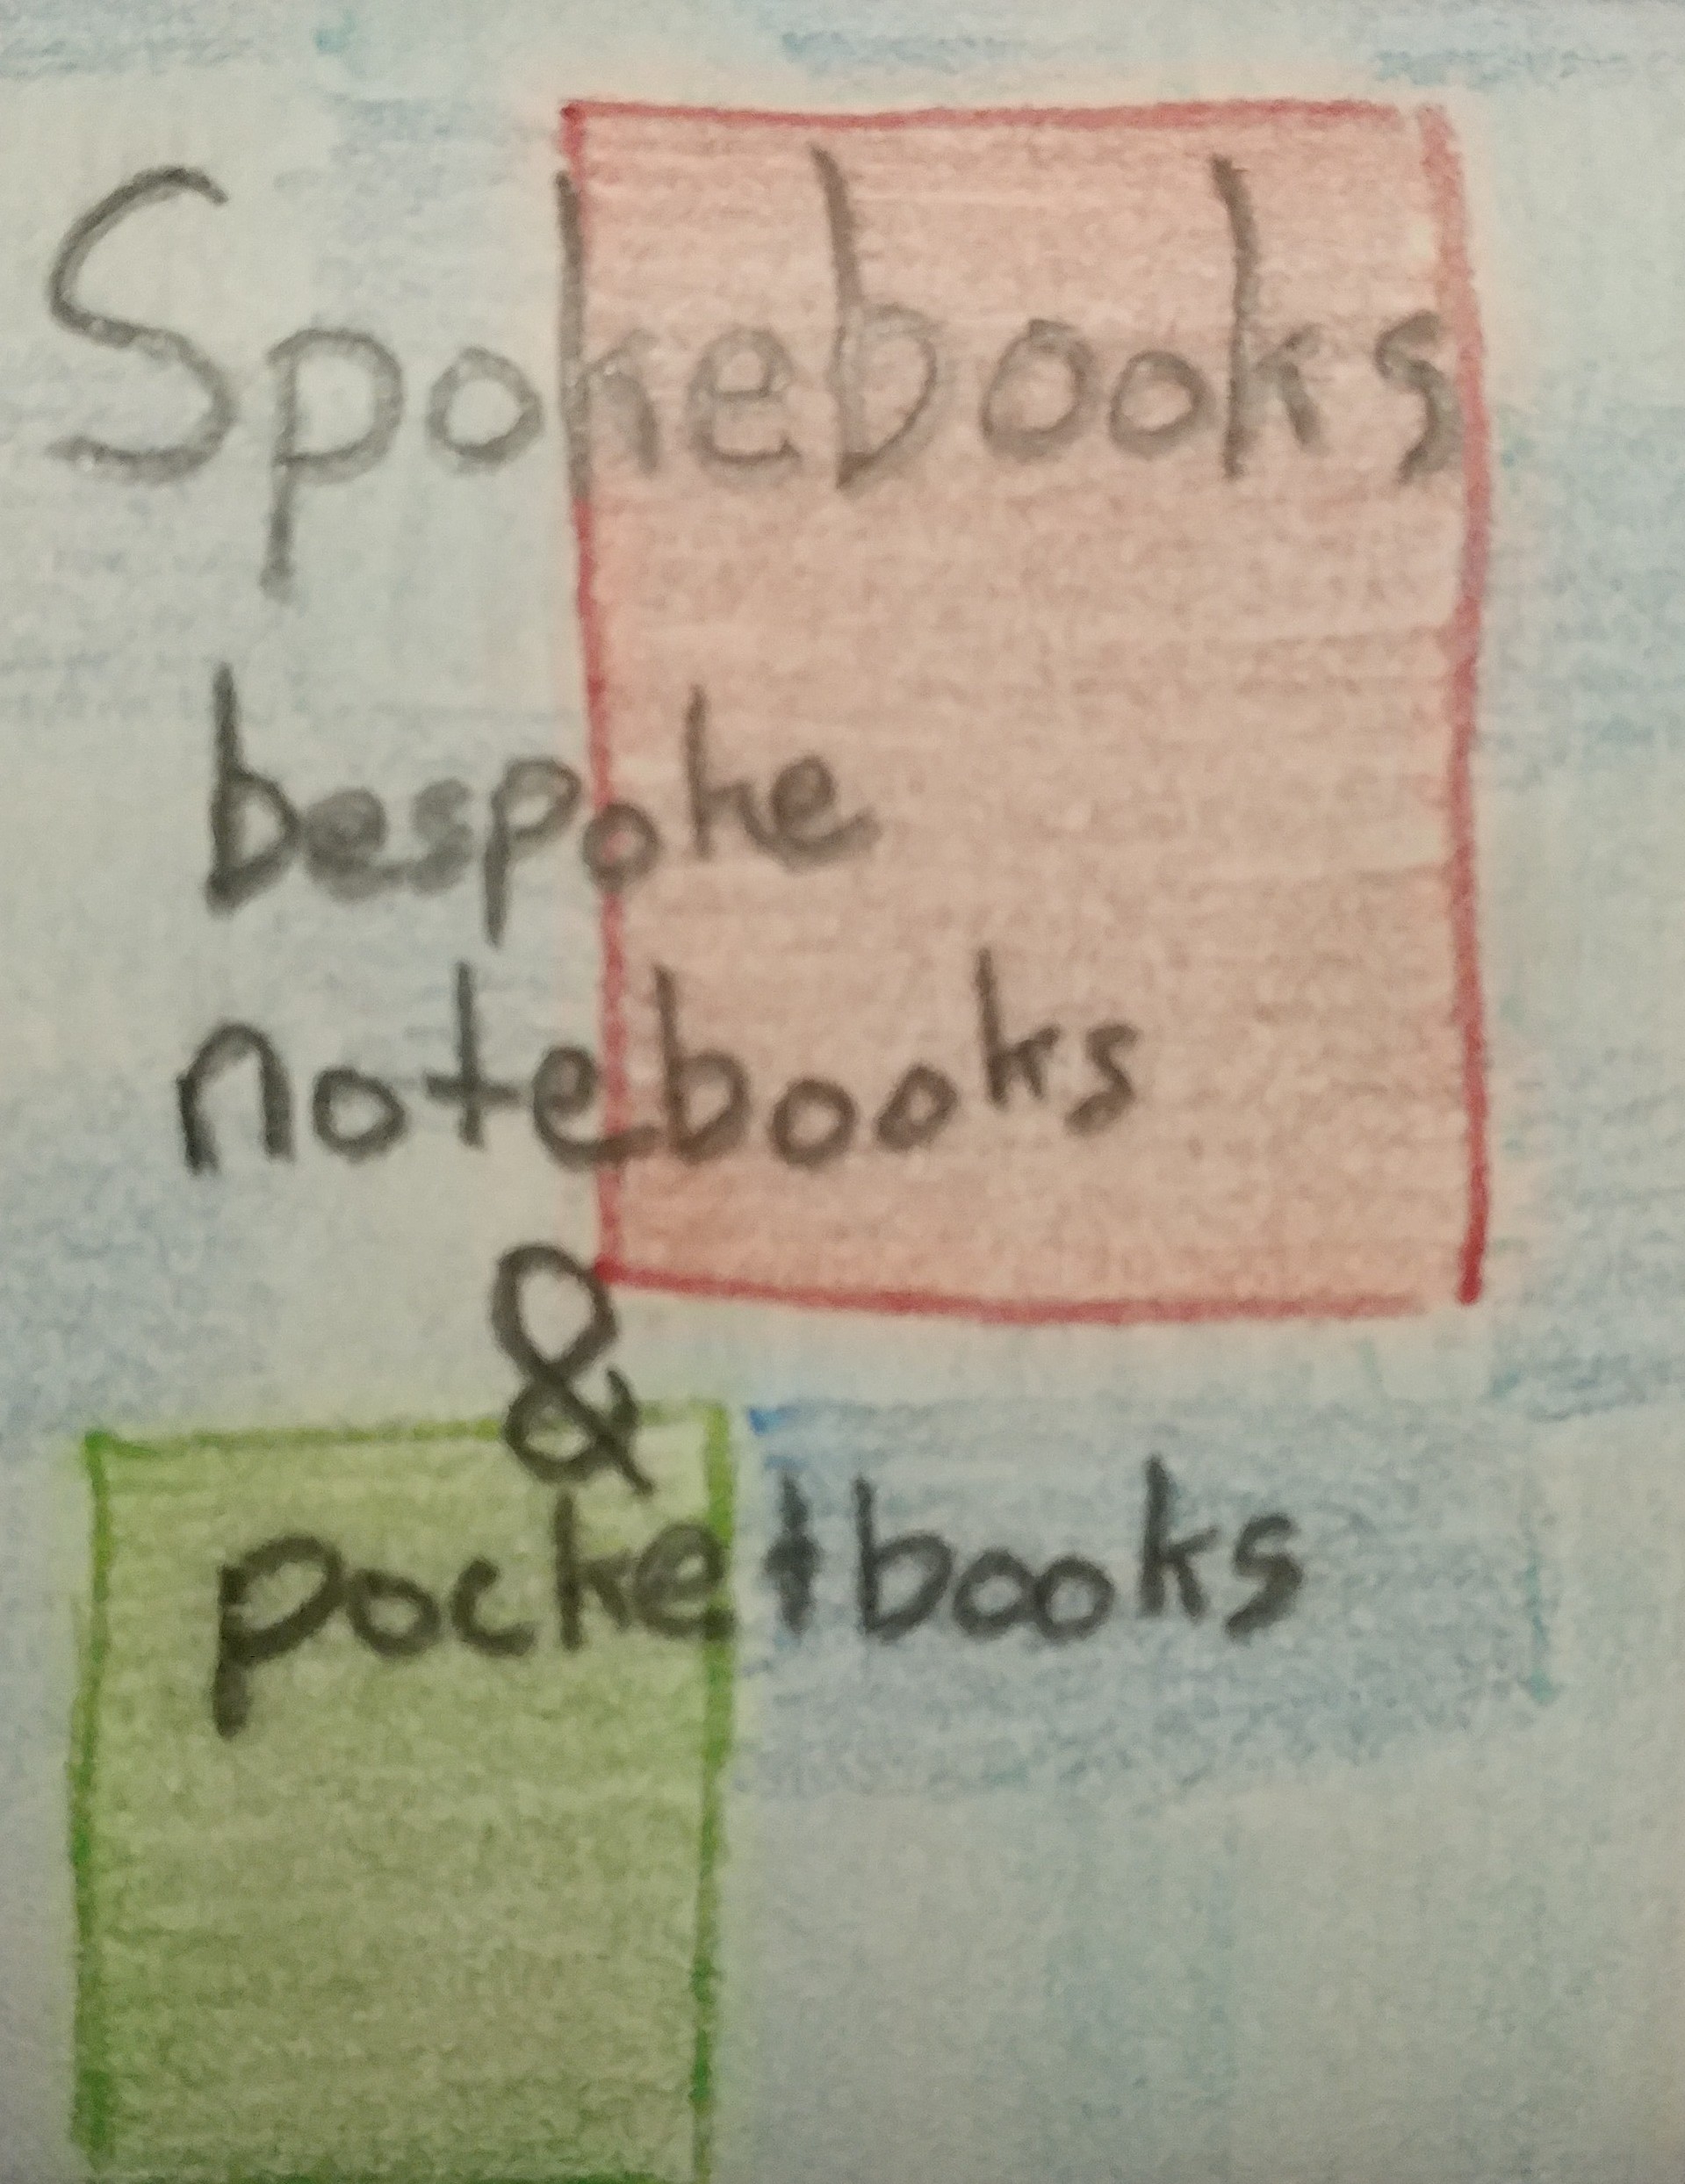 Spokebooks
bespoke
notebooks
&
pocketbooks